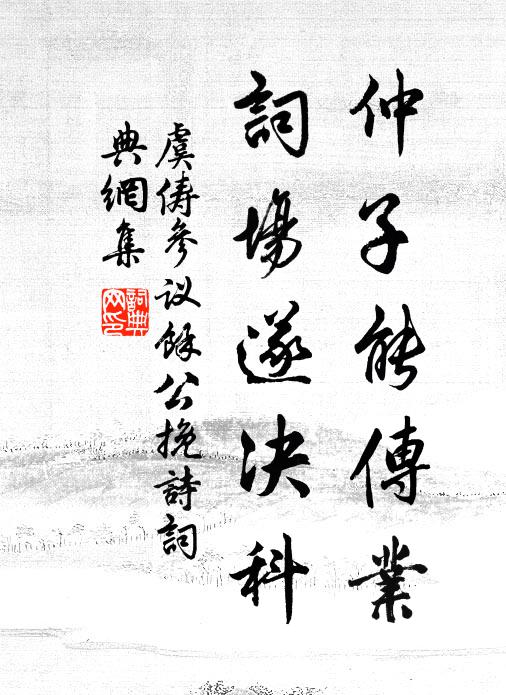 仲子能傳業
詞場遂決科
虞儔參议餘公挽詩詞
典網集
詞典
网印